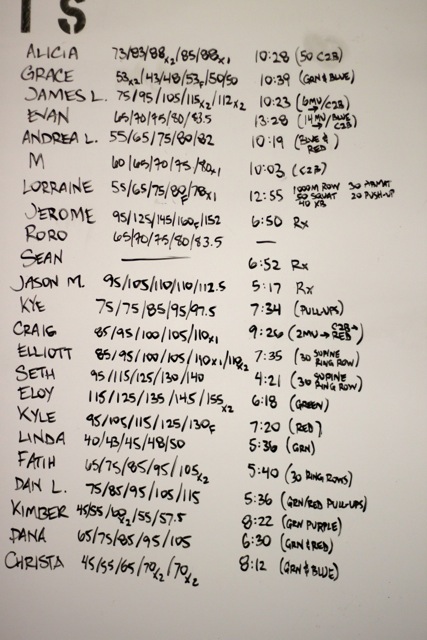 T S
ALICIA 73/83/88x2/85/88x1 10:28 (50 C2B)
GRACE 53x2/43/48/53F/50/50 10:39 (GRN & BLUE)
JAMES L. 75/95/105/115x2/112x2 10:23 (6MU → C2B)
EVAN 65/70/75/80/83.5 13:28 (14MU → BLUE C2B)
ANDREA L. 55/65/75/80/82 10:19 (BLUE & RED)
M 60/65/70/75/80x1 10:03 (C2B)
LORRAINE 55/65/75/82F/78x1 12:55 1000M ROW 30 ABMAT 50 SQUAT 20 PUSH-UP 40 KB
JEROME 95/125/145/160F/152 6:50 Rx
RORO 65/70/75/80/83.5 —
SEAN — 6:52 Rx
JASON M. 95/105/110/110/112.5 5:17 Rx
KYE 75/75/85/95/97.5 7:34 (PULL-UPS)
CRAIG 85/95/100/105/110x1 9:26 (2MU → C2B → RED)
ELLIOTT 85/95/100/105/110x1/118x2 7:35 (30 SUPINE RING ROW)
SETH 95/115/125/130/140 4:21 (30 SUPINE RING ROW)
ELOY 115/125/135/145/155x2 6:18 (GREEN)
KYLE 95/105/115/125/130F 7:20 (RED)
LINDA 40/43/45/48/50 5:36 (GRN)
FATIH 65/75/85/95/105x2 5:40 (30 RING ROWS)
DAN L. 75/85/95/105/115 5:36 (GRN/RED PULL-UPS)
KIMBER 45/55/60x2/55/57.5 8:22 (GRN PURPLE)
DANA 65/75/85/95/105 6:30 (GRN & RED)
CHRISTA 45/55/65/70x2/70x2 8:12 (GRN & BLUE)